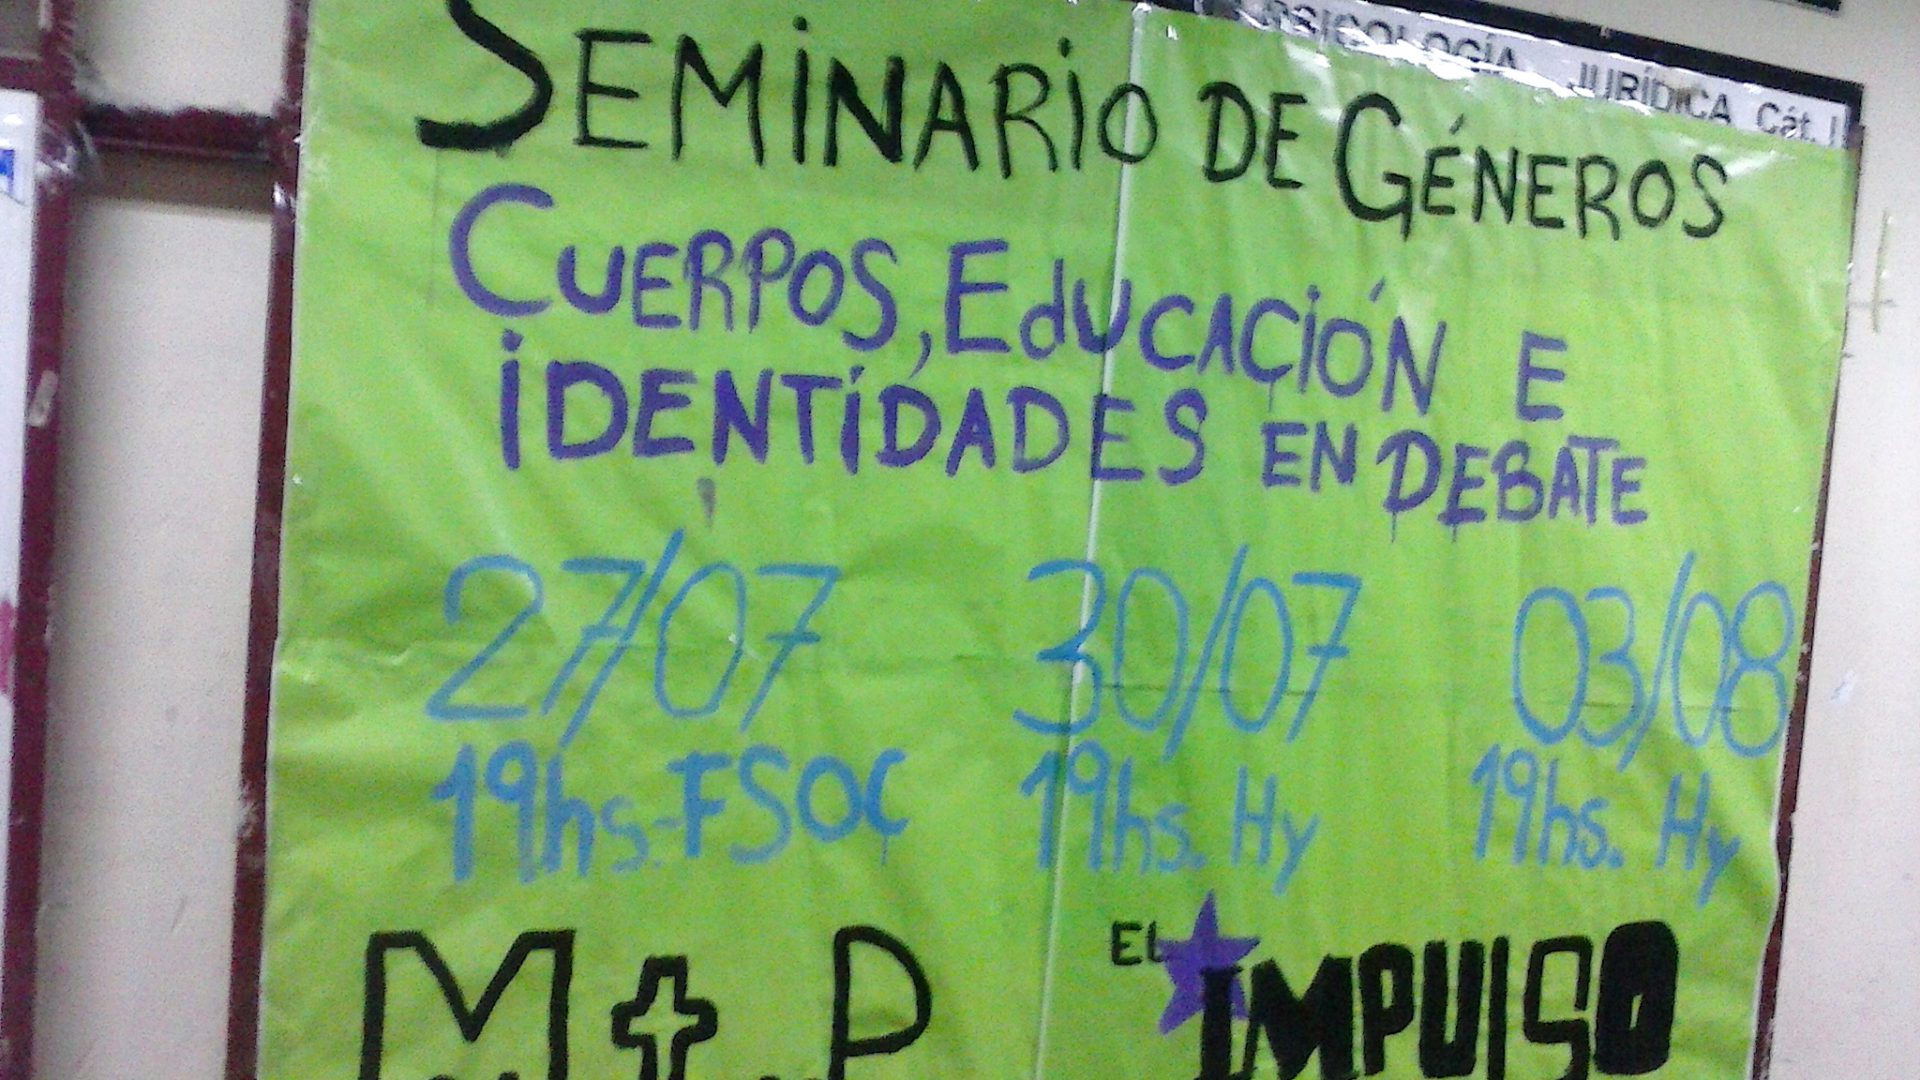 PSICOLOGÍA JURÍDICA Cát. I
SEMINARIO DE GÉNEROS
CUERPOS, EDUCACIÓN E
IDENTIDADES EN DEBATE
27/07 30/07 03/08
19hs.-FSOC 19hs. Hy 19hs. Hy
M+P
EL IMPULSO